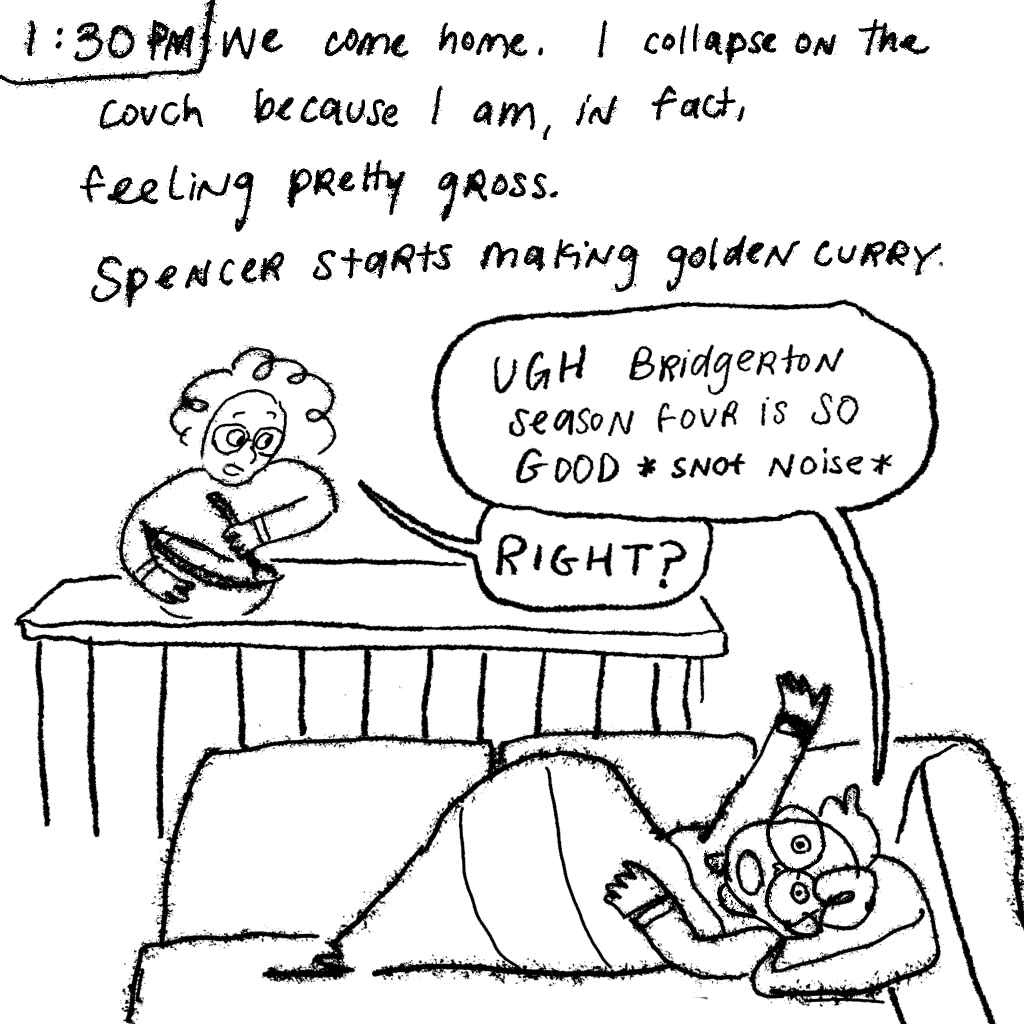 1:30 PM We come home. I collapse on the
couch because I am, in fact,
feeling pretty gross.
Spencer starts making golden curry.
UGH Bridgerton
season four is SO
GOOD *snot noise*
RIGHT?